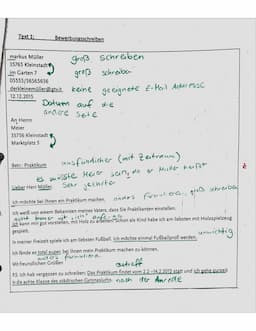 Text 1: Bewerbungsschreiben
markus Müller groß schreiben
35765 Kleinstadt
Im Garten 7 groß schreiben
05555/56565656
derkleinemüller@gmx.de keine geeignete E-Mail Adresse
12.12.2015
Datum auf die
andere Seite
An Herrn
Meier
35756 Kleinstadt
Marktplatz 5
Betr.: Praktikum ausführlicher (mit Zeitraum)
Es müsste Meier sein, da er Meier heißt
Lieber Herr Müller, Sehr geehrter
Ich möchte bei Ihnen am Praktikum machen. anders formulieren, groß schreiben
Ich weiß von einem Bekannten meines Vaters, dass Sie Praktikanten einstellen.
nicht immer mit "ich" anfangen
Ich kann mir gut vorstellen, mit Holz zu arbeiten, schon als Kind habe ich am liebsten mit Holzspielzeug
gespielt.
In meiner Freizeit spiele ich am liebsten Fußball. Ich möchte einmal Fußballprofi werden. unwichtig
Ich fände es total super, bei Ihnen mein Praktikum machen zu können.
anders formulieren
Mit freundlichen Grüßen
P.S. Ich hab vergessen zu schreiben: Das Praktikum findet vom 2.2.-14.2.2015 statt und ich gehe zurzeit
in die achte Klasse des städtischen Gymnasiums. nach der Anrede